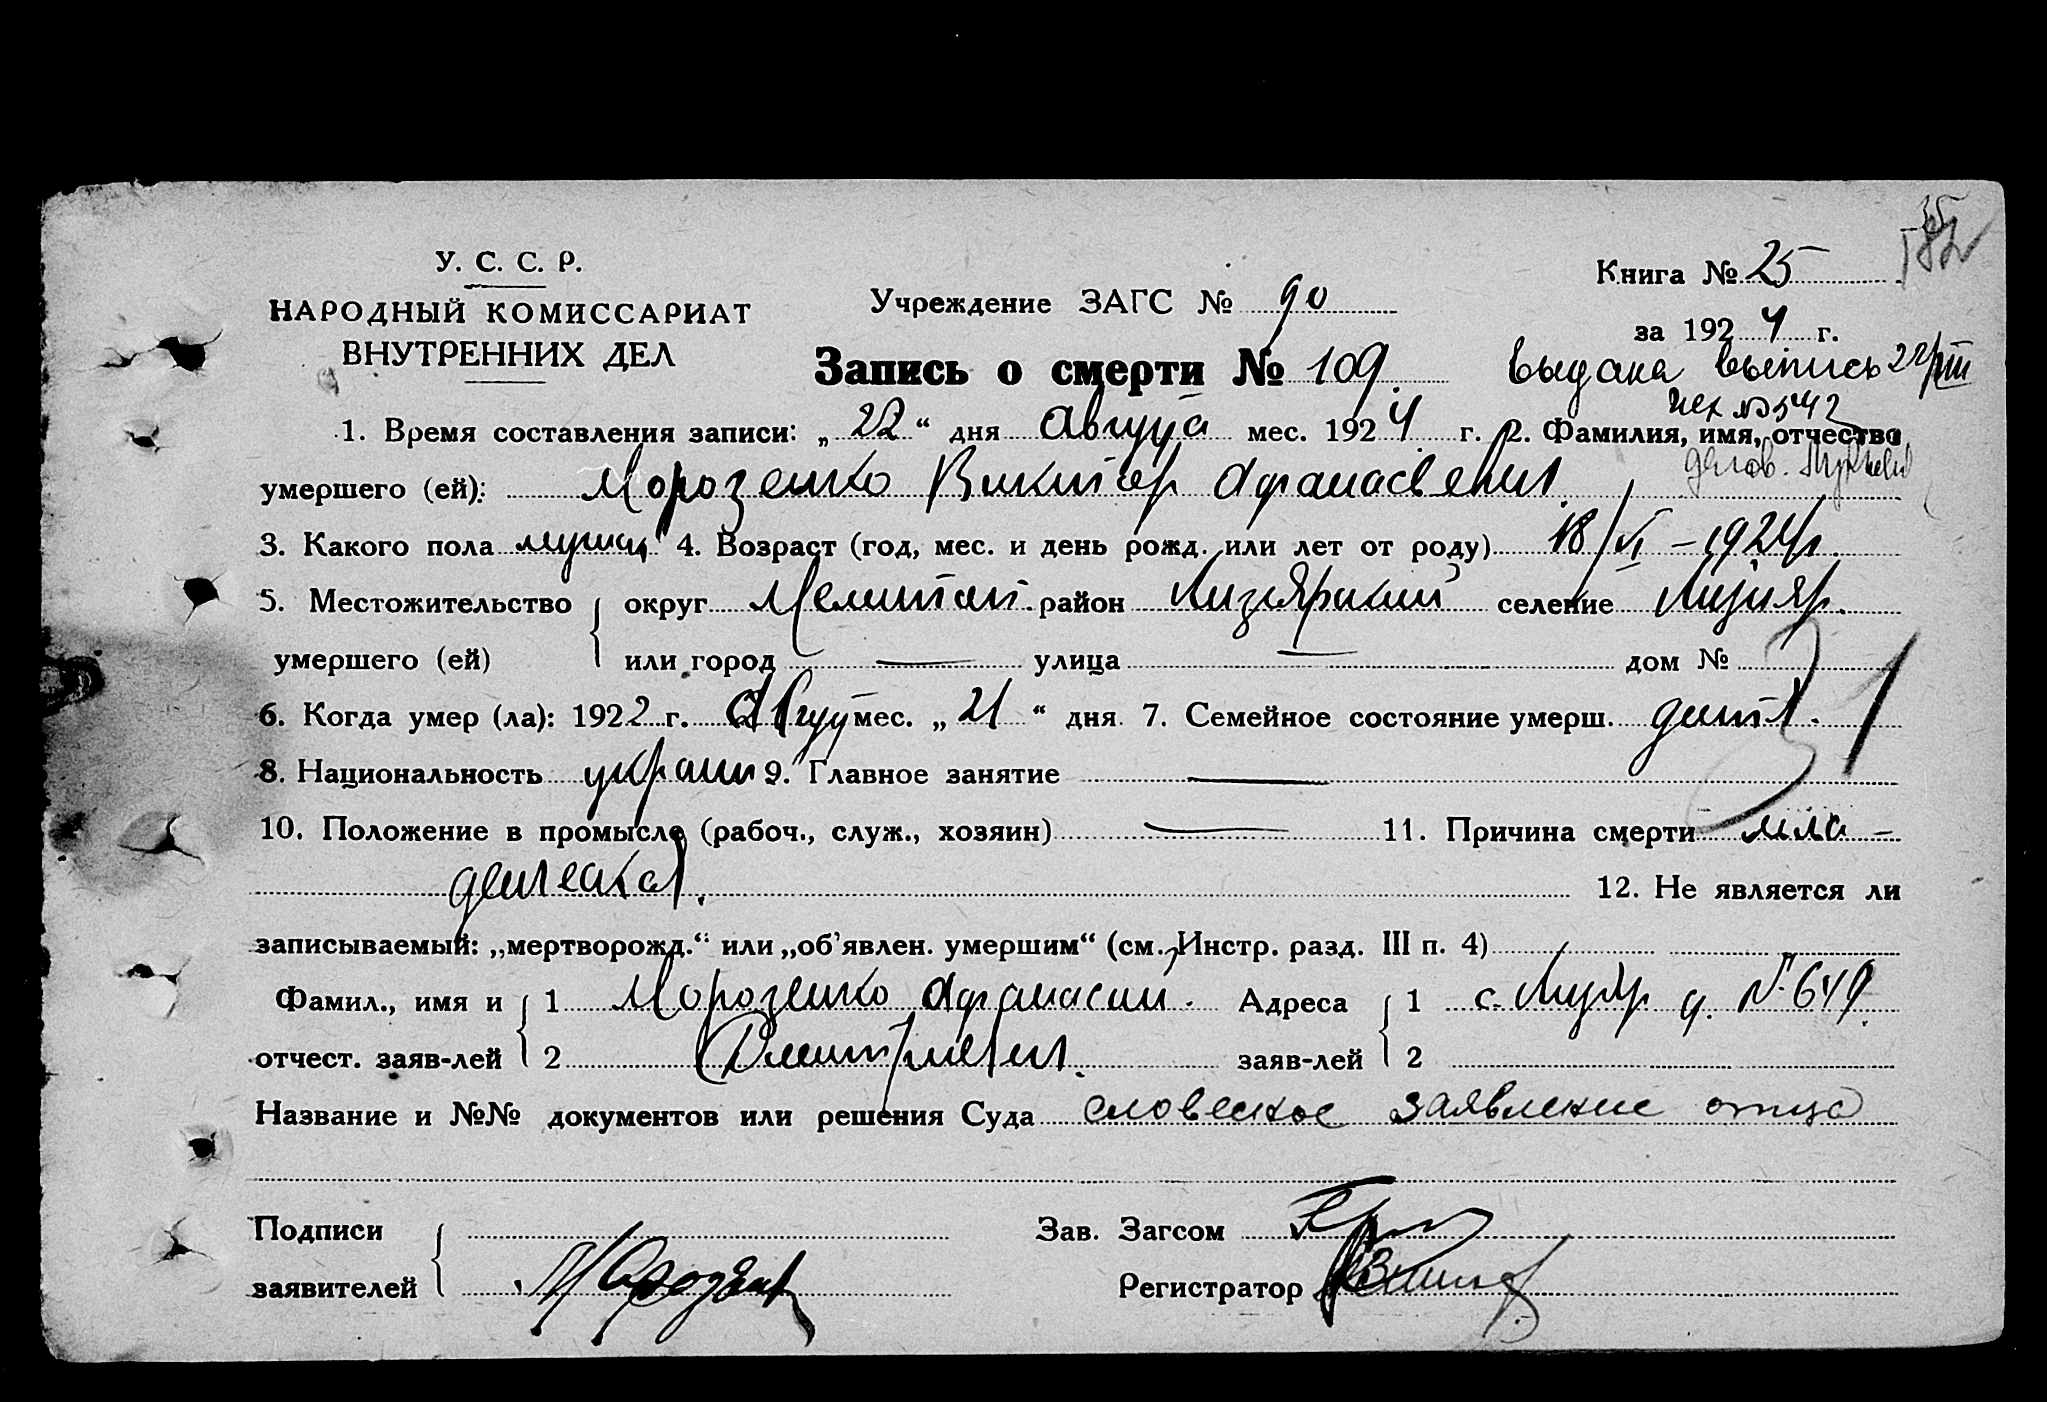 У. С. С. Р.
НАРОДНЫЙ КОМИССАРИАТ
ВНУТРЕННИХ ДЕЛ
Учреждение ЗАГС № 90
Книга № 25
182
за 1924 г.
Запись о смерти № 109.
Выдана выпись 22/VIII
1. Время составления записи: „22“ дня Августа мес. 1924 г. 2. Фамилия, имя, отчество
умершего (ей): Морозенко Виктор Афанасьевич.
3. Какого пола мужск 4. Возраст (год, мес. и день рожд. или лет от роду) 18/VI – 1924 г.
5. Местожительство округ Мелитоп. район Лизярский селение
умершего (ей) или город — улица — дом №
31
6. Когда умер (ла): 1922 г. Авгус мес. „21“ дня 7. Семейное состояние умерш. дитя.
8. Национальность украин 9. Главное занятие —
10. Положение в промысле (рабоч., служ., хозяин) — 11. Причина смерти мла-
денческая. 12. Не является ли
записываемый: „мертворожд.“ или „об'явлен. умершим“ (см. Инстр. разд. III п. 4)
Фамил., имя и 1 Морозенко Афанасий. Адреса 1 с. д. № 649.
отчест. заяв-лей 2 Дмитриевич. заяв-лей 2
Название и №№ документов или решения Суда словесное заявление отца
Подписи Зав. Загсом
заявителей Регистратор